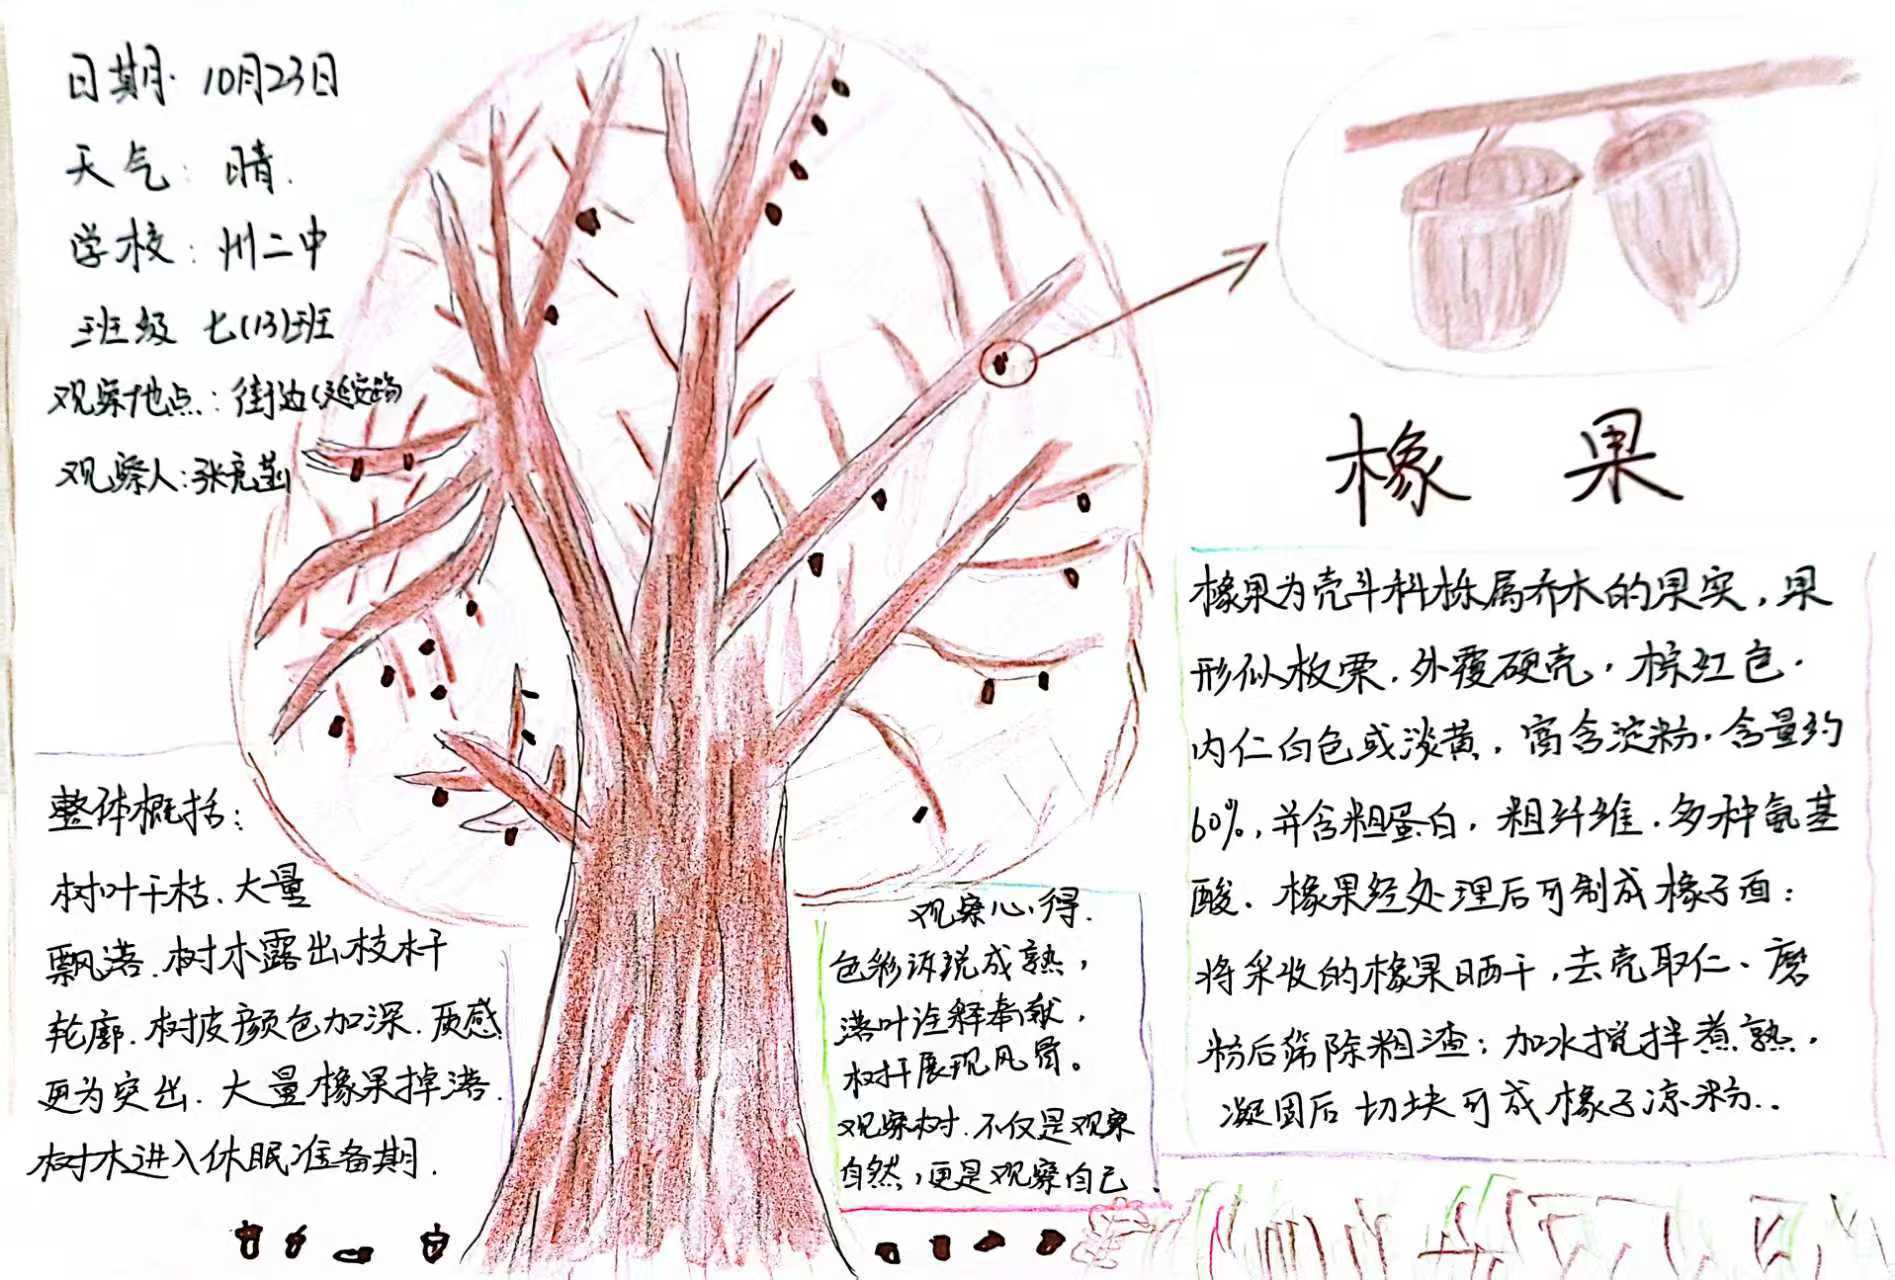 日期 10月23日
天气：晴.
学校：州二中
班级 七(13)班
观察地点：街边(延安路)
观察人：张
整体概括：
树叶干枯.大量
飘落.树木露出枝杆
轮廓.树皮颜色加深.质感
更为突出.大量橡果掉落.
树木进入休眠准备期.
观察心得.
色彩诉说成熟，
落叶诠释奉献，
树杆展现风骨。
观察树.不仅是观察
自然，更是观察自己.
橡 果
橡果为壳斗科栎属乔木的果实，果
形似板栗.外覆硬壳，棕红色.
内仁白色或淡黄，富含淀粉.含量约
60%,并含粗蛋白，粗纤维.多种氨基
酸.橡果经处理后可制成橡子面：
将采收的橡果晒干，去壳取仁、磨
粉后筛除粗渣；加水搅拌煮熟，
凝固后切块可成橡子凉粉..